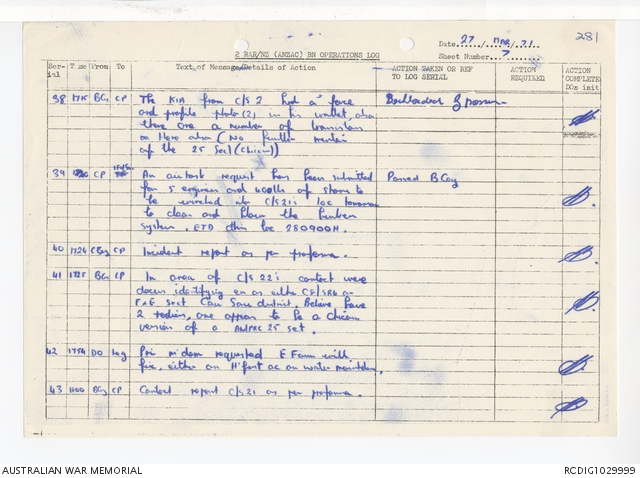 281
Date 27 / MAR / 71
2 RAR/NZ (ANZAC) BN OPERATIONS LOG
Sheet Number 7
Ser-ial Time From To Text of Message/Details of Action ACTION TAKEN OR REF TO LOG SERIAL ACTION REQUIRED ACTION COMPLETE DOs init
38 1715 BCoy CP The KIA from C/S 2 had a face
and profile photo (2) in his wallet, also
there are a number of transistors
on there also (No further mention
of the 25 set (Chicom))
39 CP An request has been submitted
for 5 engineers and 400lbs of stores to
be winched into C/S 21's loc tomorrow
to clear and blow the bunker
system. ETD this loc 280900H.
Passed B Coy
40 1724 CP Incident report as per proforma.
41 1725 BCoy CP In area of C/S 22's contact were
docus identifying en as either
Sect Cau Song district. Believe have
2 radios, one appears to be a chicom
version of a AN/PRC 25 set.
42 1754 DO Log requested E Fam with
fire, either on H'port ac on water mountain.
43 BCoy CP Contact report C/S 21 as per proforma.
AUSTRALIAN WAR MEMORIAL
RCDIG1029999